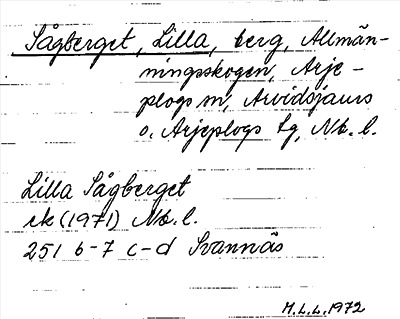 Sågberget, Lilla, berg, Allmän-
ningsskogen, Arje-
plogs sn, Arvidsjaurs
o. Arjeplogs tg, Nb. l.
Lilla Sågberget
ek (1971) Nb. l.
251 6-7 c-d Svannäs
M.L.L. 1972